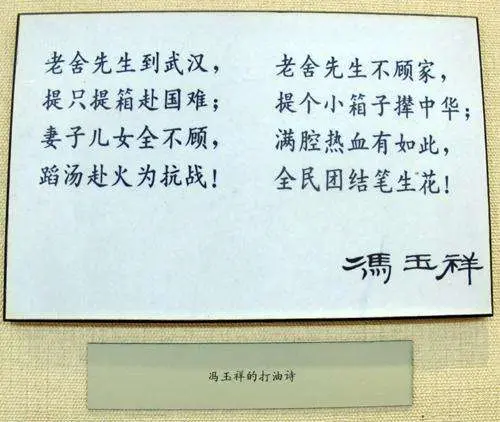 老舍先生到武汉，
提只提箱赴国难；
妻子儿女全不顾，
蹈汤赴火为抗战！
老舍先生不顾家，
提个小箱子撵中华；
满腔热血有如此，
全民团结笔生花！
馮玉祥
冯玉祥的打油诗